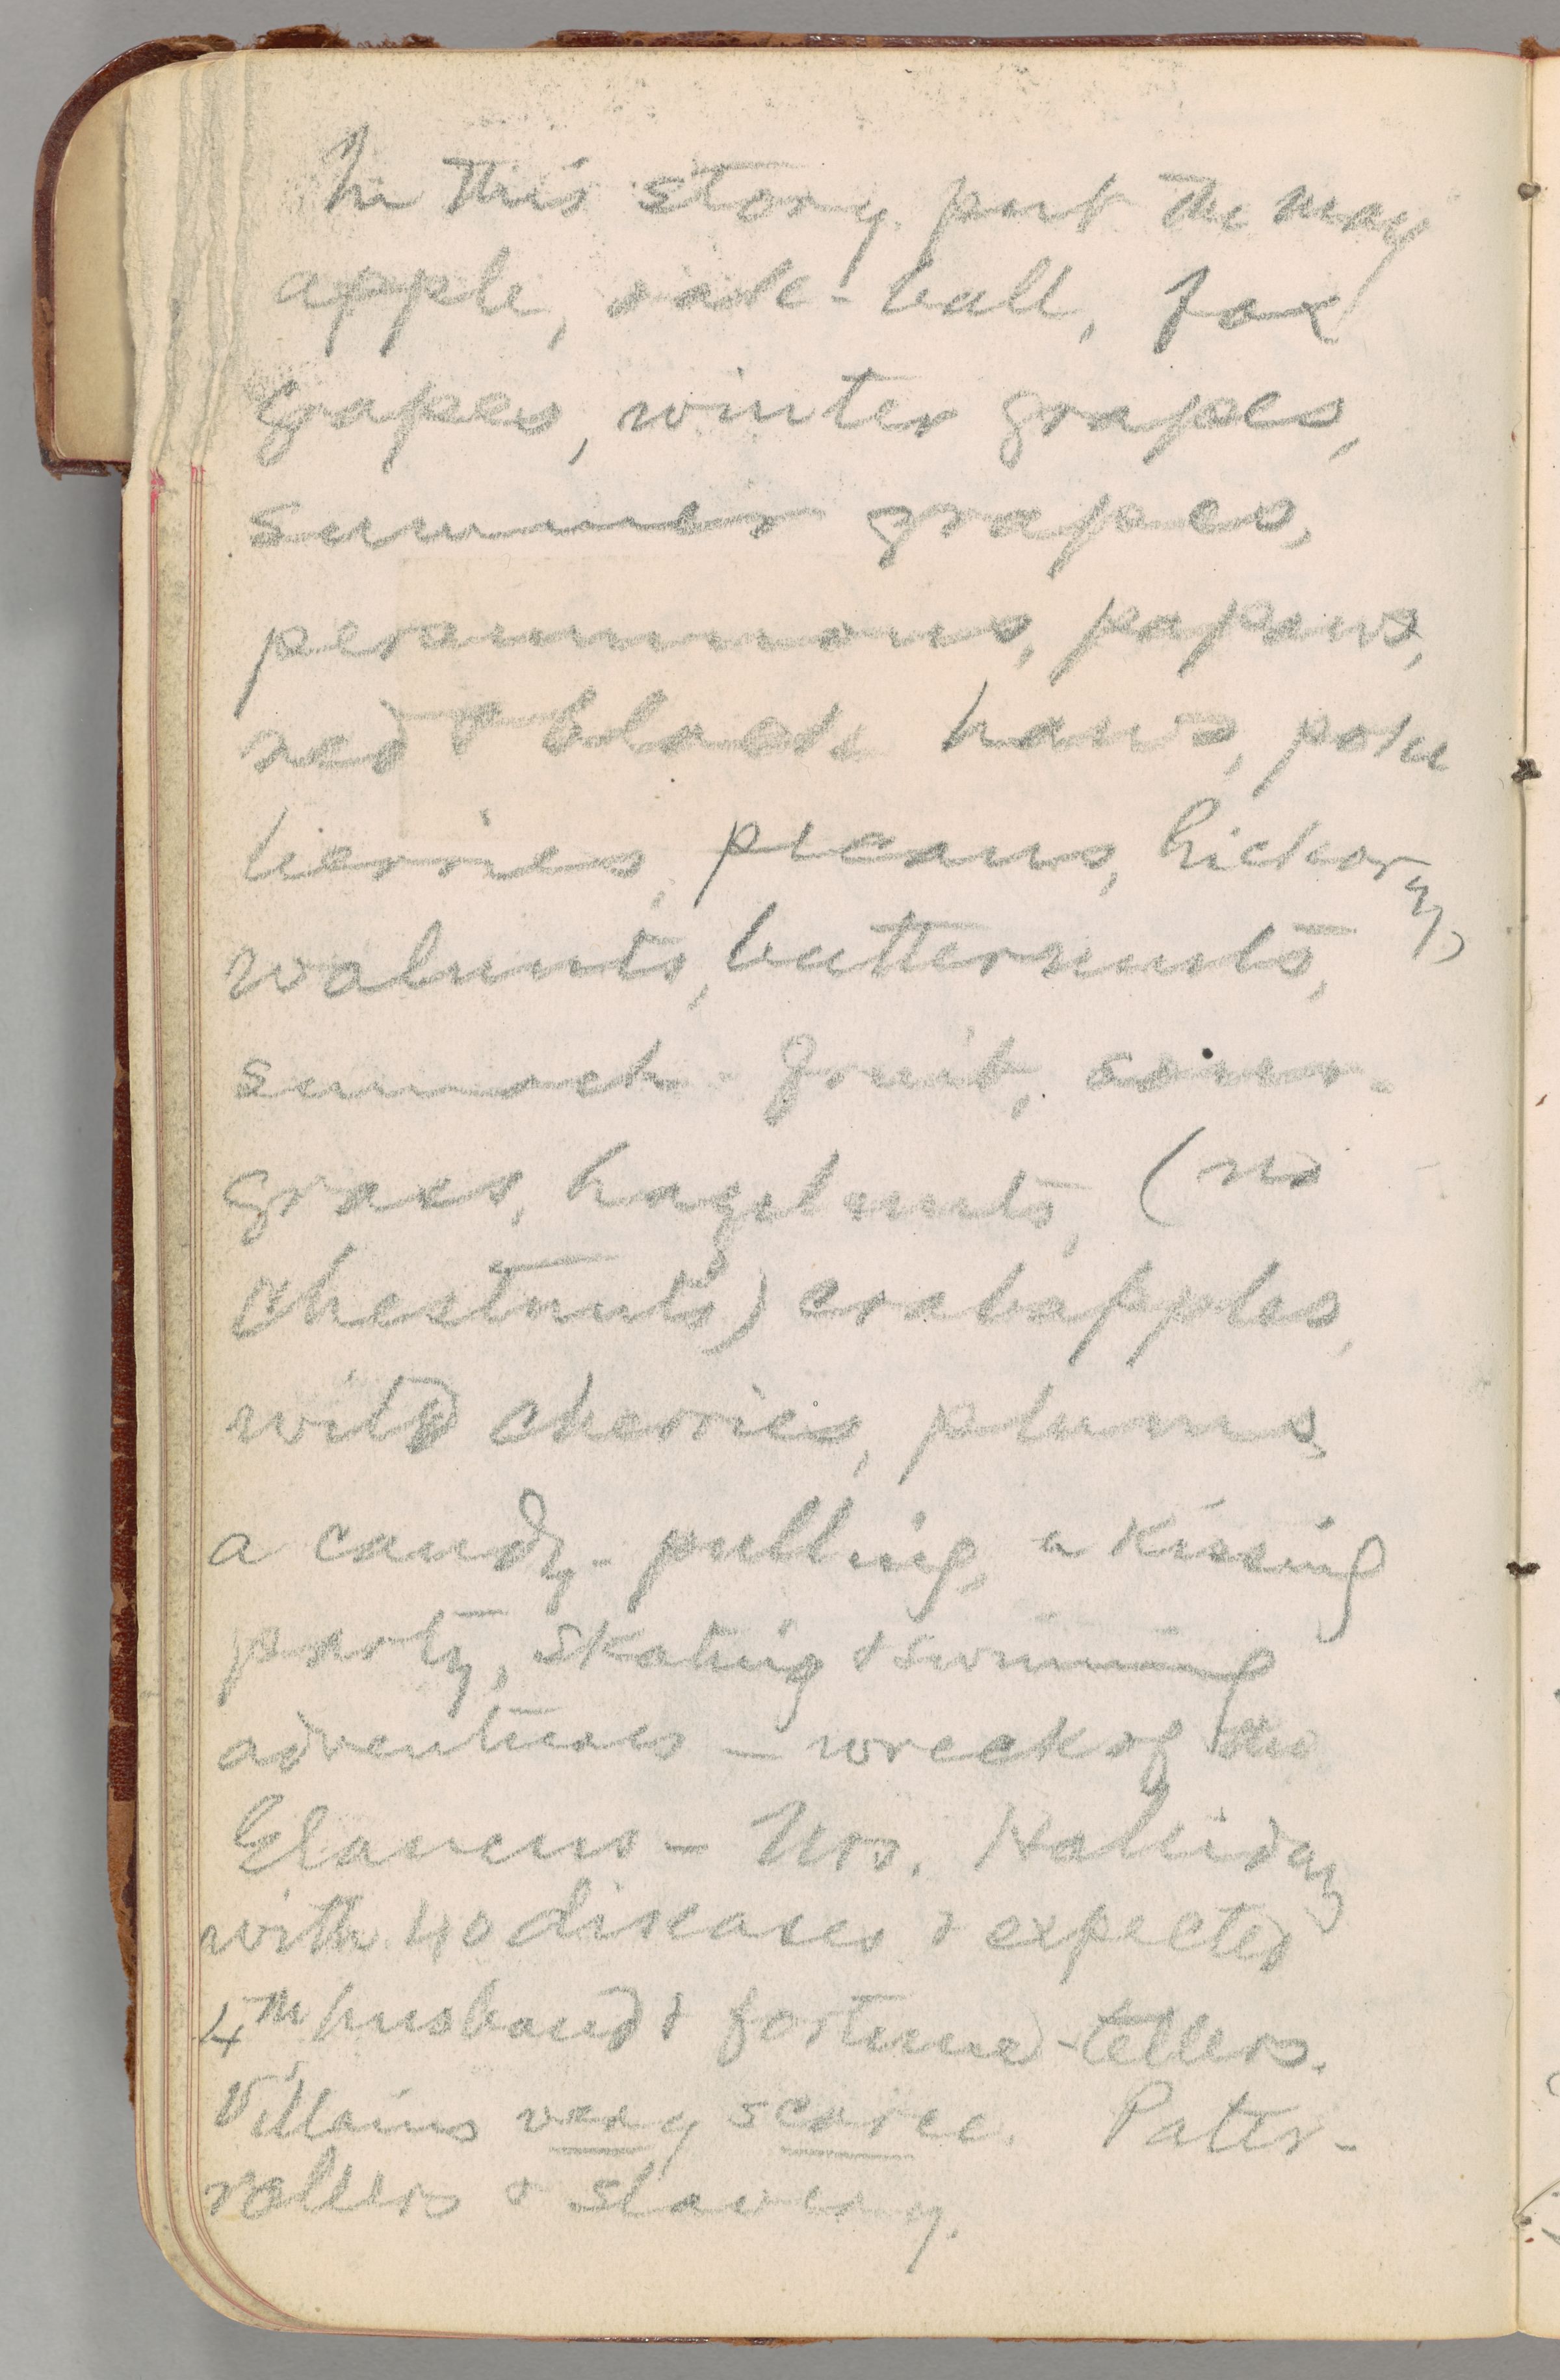 In this story put the may
apple, oak-ball, fox
grapes, winter grapes,
summer grapes,
persimmons, papaws,
red & black haws, poke
berries, pecans, hickory,
walnuts, butternuts,
sumach-fruit, sour-
grass, hazelnuts, (no
chestnuts) crabapples,
wild cherries, plums,
a candy-pulling, a kissing
party, skating & swimming
adventures – wreck of the
– Mrs. Holliday
with 40 diseases & expected
4th husband & fortune-tellers.
Villains very scarce. Patter-
rollers & slavery.